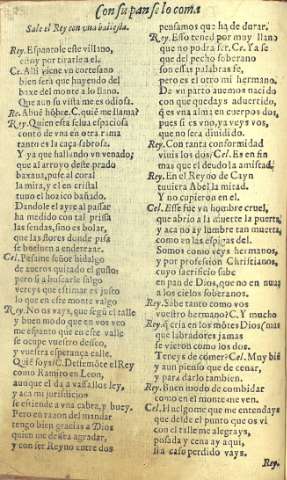 Con su pan se lo coma
Sale el Rey con una ballesta.
Rey. Espantole este villano,
estoy por tirarle a el.
Ce. Alli viene vn cortesano
bien será que huyendo del
baxe del monte a lo llano.
Que aun su vista me es odiosa.
Re. Ahuè hõbre. C. quiē me llama?
Rey. Quien esta selua espaciosa
conto de vna en otra rama
tanto es la caça sabrosa.
Y ya que hallando vn venado;
que al arroyo deste prado
baxaua, puse al coral
la mira, y el en cristal
tuuo el hozico bañado.
Dandole el ayre al passar
ha medido con tal prissa
las sendas, sino es bolar,
que las flores donde pisa
se bueluen a enderezar.
Cel. Pesame señor hidalgo
de aueros quitado el gusto
pero si a buscarle salgo
vereys que estimar es justo
lo que en este monte valgo
Rey. No os vays, que segũ el talle
y buen modo que en vos veo
me espanto que en este valle
se ocupe vuestro desseo,
y vuestra esperança calle.
Quiē soys? C. Destemõte el Rey
como Ramiro en Leon,
aunque el da a vassallos ley,
y aca mi jurisdicion
se estiende a vna cabra, y buey.
Pero en razon del mandar
tengo bien gracias a Dios
quien me dessea agradar,
y con ser Reyno entre dos
pensamos que ha de durar.
Rey. Esso tened por muy llano
que no podra ser. Ce. Ya se
que del pecho soberano
son essas palabras fe,
pero es el otro mi hermano.
De vn parto auemos nacido
con que quedays aduertido,
q̃ es vna alma en cuerpos dos,
pues si es vno, y veys vos,
que no sera diuidido.
Rey. Con tanta conformidad
viuis los dos? Cel. Es en fin
mas que el deudo la amistad.
Rey. En el Reyno de Cayn
tuuiera Abel la mitad.
Y no cupieron en el.
Cel. Esse fue vn hombre cruel,
que abrio a la muerte la puerta,
y aca no ay lumbre tan muerta,
como en las espigas del.
Somos como veys hermanos,
y por profession Christianos,
cuyo sacrificio sabe
en pan de Dios, que no en
a los cielos soberanos.
Rey. Sabe tanto como vos
vuestro hermano? C. Y mucho
Rey. q̃ cria en los mõtes Dios (mas
que labradores jamas
se vieron como los dos.
Teneys de comer? Ce. Muy biē
y aun pienso que de cenar,
y para darlo tambien.
Rey. Buen modo de combidar
como en el monte me ven.
Cel. Huelgome que me entendays
que desde el punto que os vi
con el talle me alegrays,
posada y cena ay aqui,
si a caso perdido vays.
Rey.